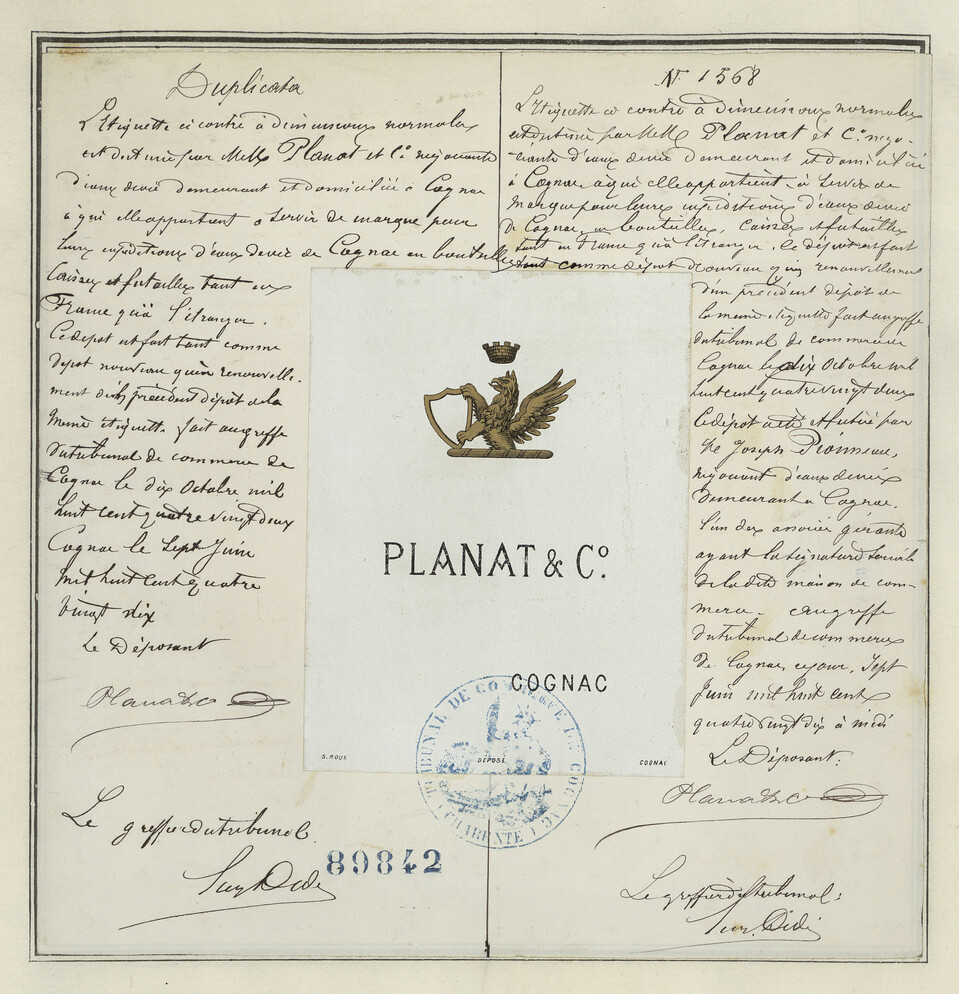 Duplicata
L'Etiquette ci contre à dimensions normales
est destinée par MM Planat et Co négociants
d'eaux de vie demeurant et domiciliés à Cognac
à qui elle appartient à servir de marque pour
leurs expéditions d'eaux de vie de Cognac en bouteilles
caisses et futailles tant en
France qu'à l'étranger.
Ce dépot est fait tant comme
dépot nouveau qu'en renouvelle-
ment d'un précédent dépot de la
même étiquette fait au greffe
du tribunal de commerce de
Cognac le dix Octobre mil
huit cent quatre vingt deux
Cognac le Sept Juin
mil huit cent quatre
vingt dix
Le Déposant
Planat & Co
Le greffier du tribunal
89842
No 1368
L'Etiquette ci contre à dimensions normales
est destinée par MM Planat et Co négo-
ciants d'eaux de vie demeurant et domiciliés
à Cognac, à qui elle appartient, à servir de
marque pour leurs expéditions d'eaux de vie
de Cognac, en bouteilles, caisses et futailles
tant en France qu'à l'étranger. Ce dépot est fait
tant comme dépot nouveau qu'en renouvellement
d'un précédent dépot de
la même étiquette fait au greffe
du tribunal de commerce de
Cognac le dix Octobre mil
huit cent quatre vingt deux
Ce dépot a été effectué par
Joseph
négociant d'eaux de vie
demeurant à Cognac,
l'un des associés gérants
ayant la signature sociale
de la dite maison de com-
merce. au greffe
du tribunal de commerce
de Cognac, ce jour, Sept
Juin mil huit cent
quatre vingt dix à midi
Le Déposant:
Planat & Co
Le greffier du tribunal:
PLANAT & Co.
COGNAC
S. ROUX
DÉPOSÉ
COGNAC
TRIBUNAL DE COMMERCE DE COGNAC
CHARENTE